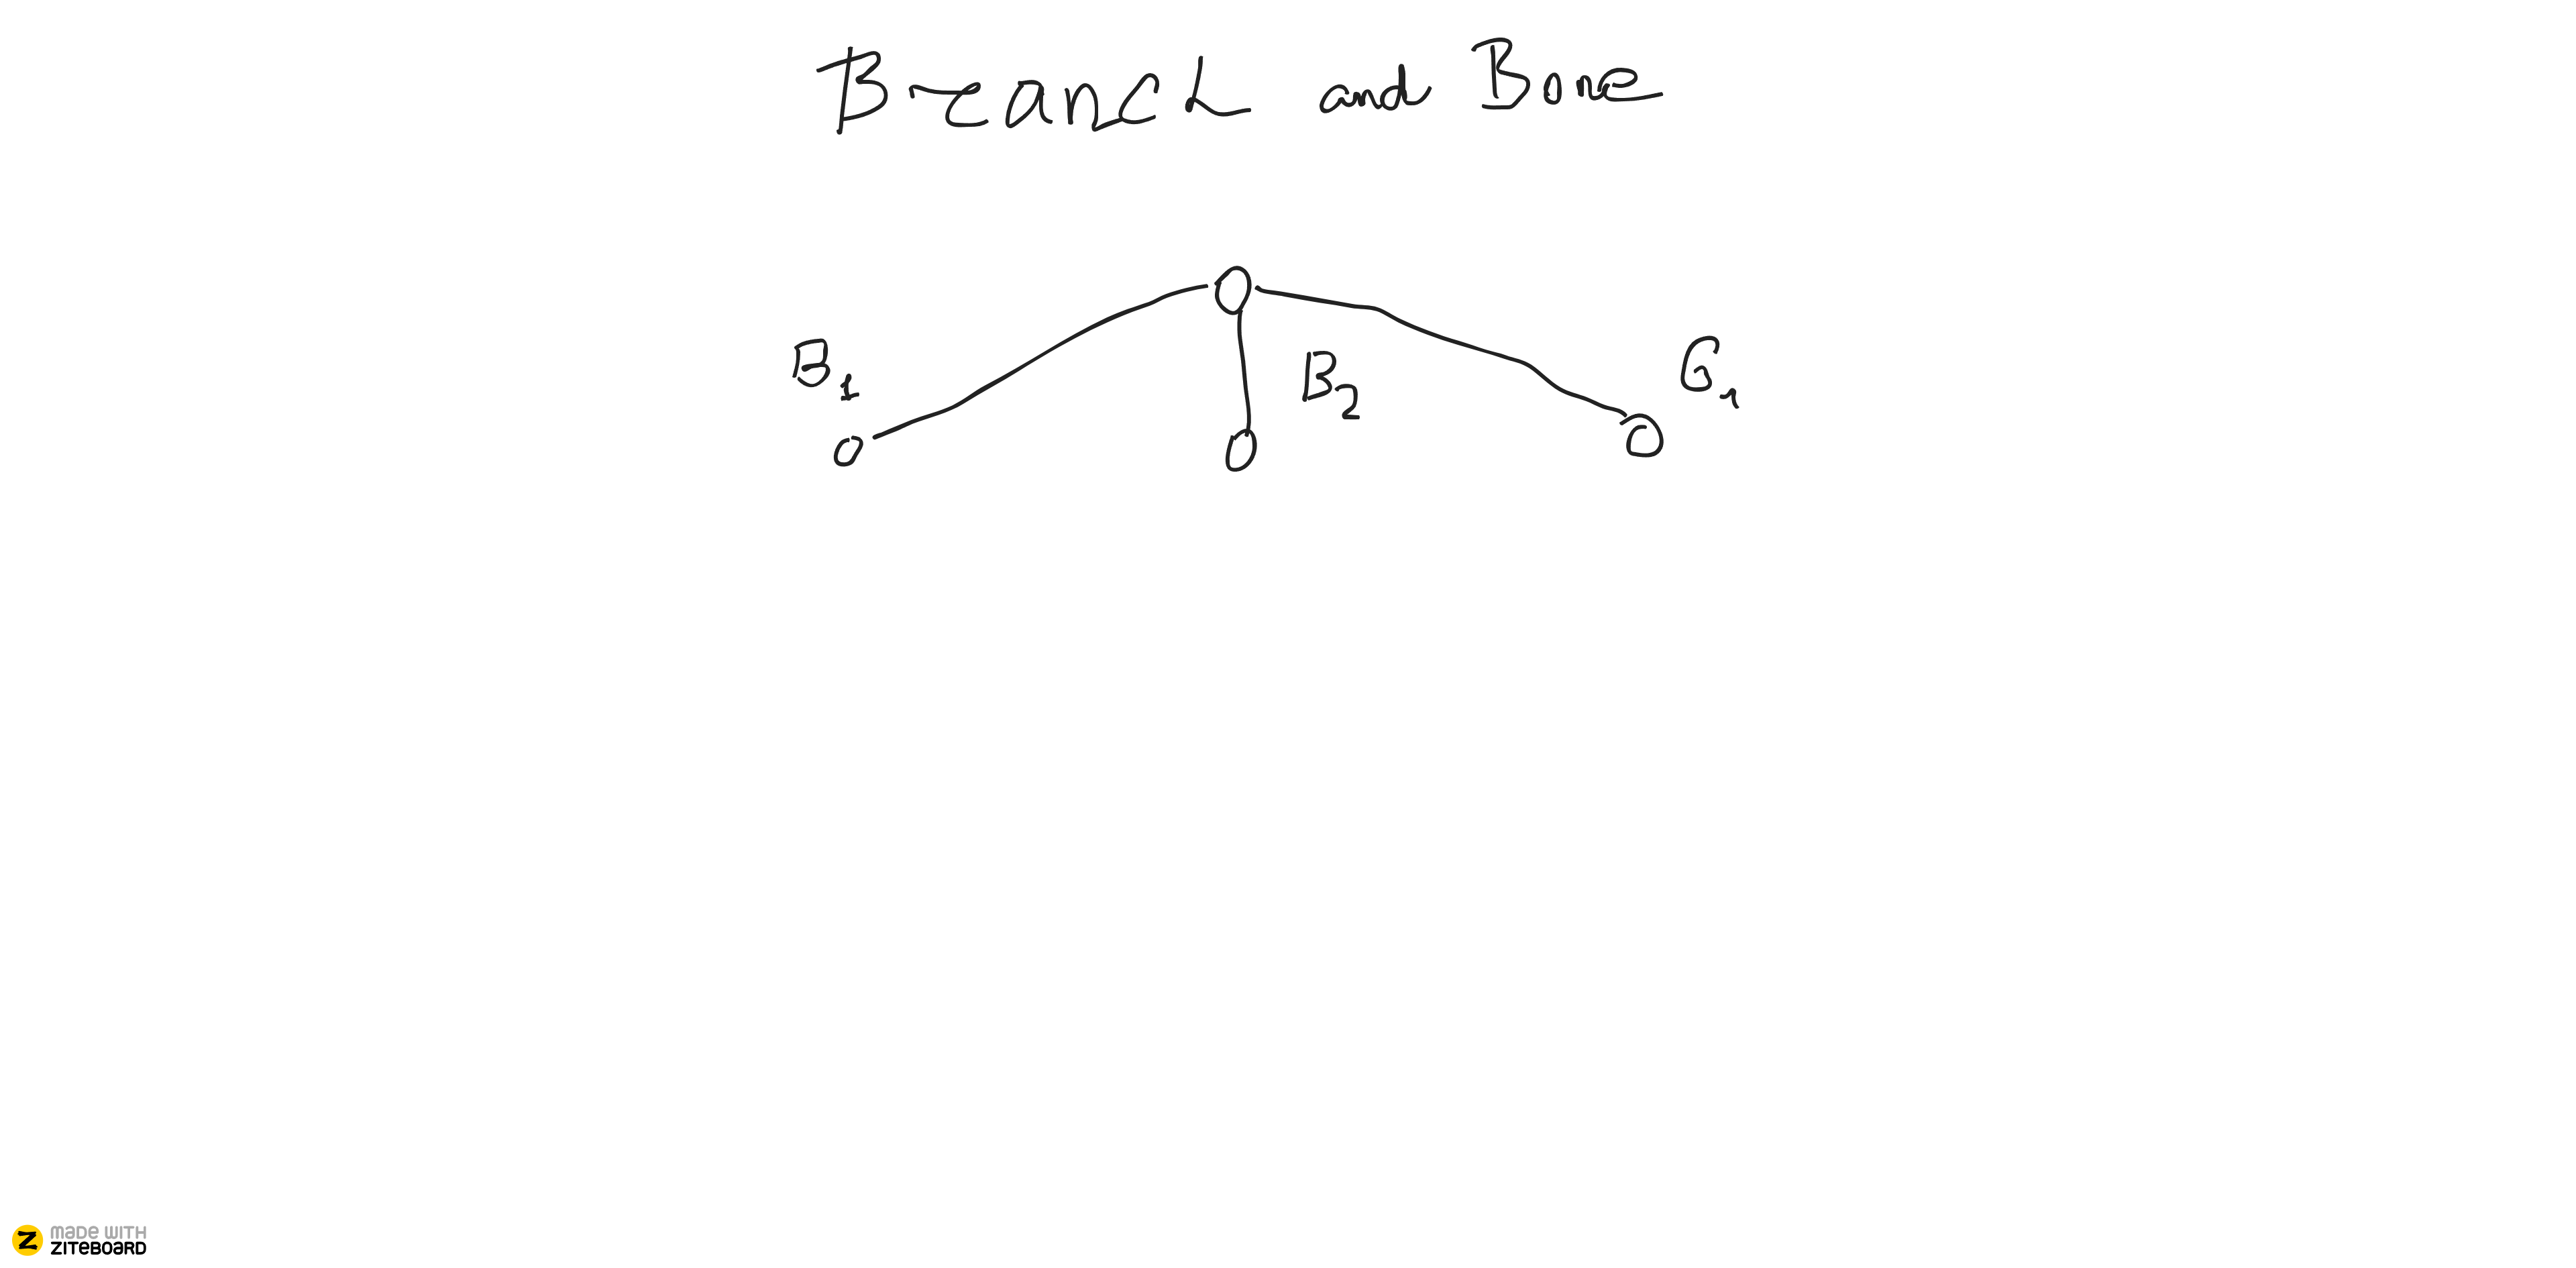 Branch and Bone
B₁
B₂
G₁
MADE WITH
ZITEBOARD